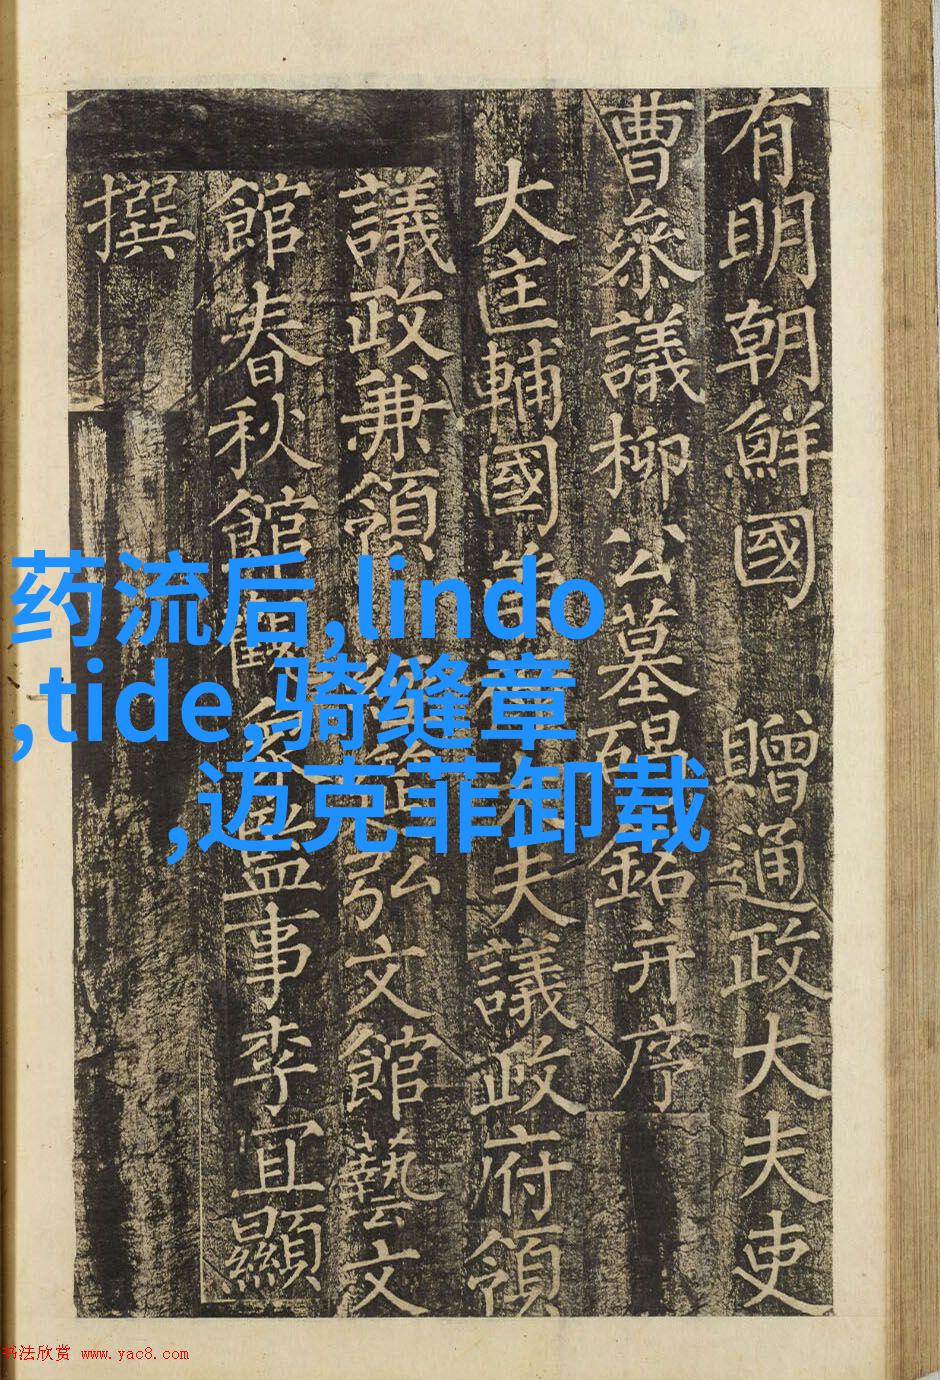 有明朝鮮國 贈通政大夫吏
曹叅議柳公墓碣銘并序
大匡輔國崇祿大夫議政府領
議政兼領經筵弘文館藝文
館春秋館觀象監事李宜顯
撰
药流后,lindo
,tide,骑缝章
,迈克菲卸载
书法欣赏 www.yac8.com